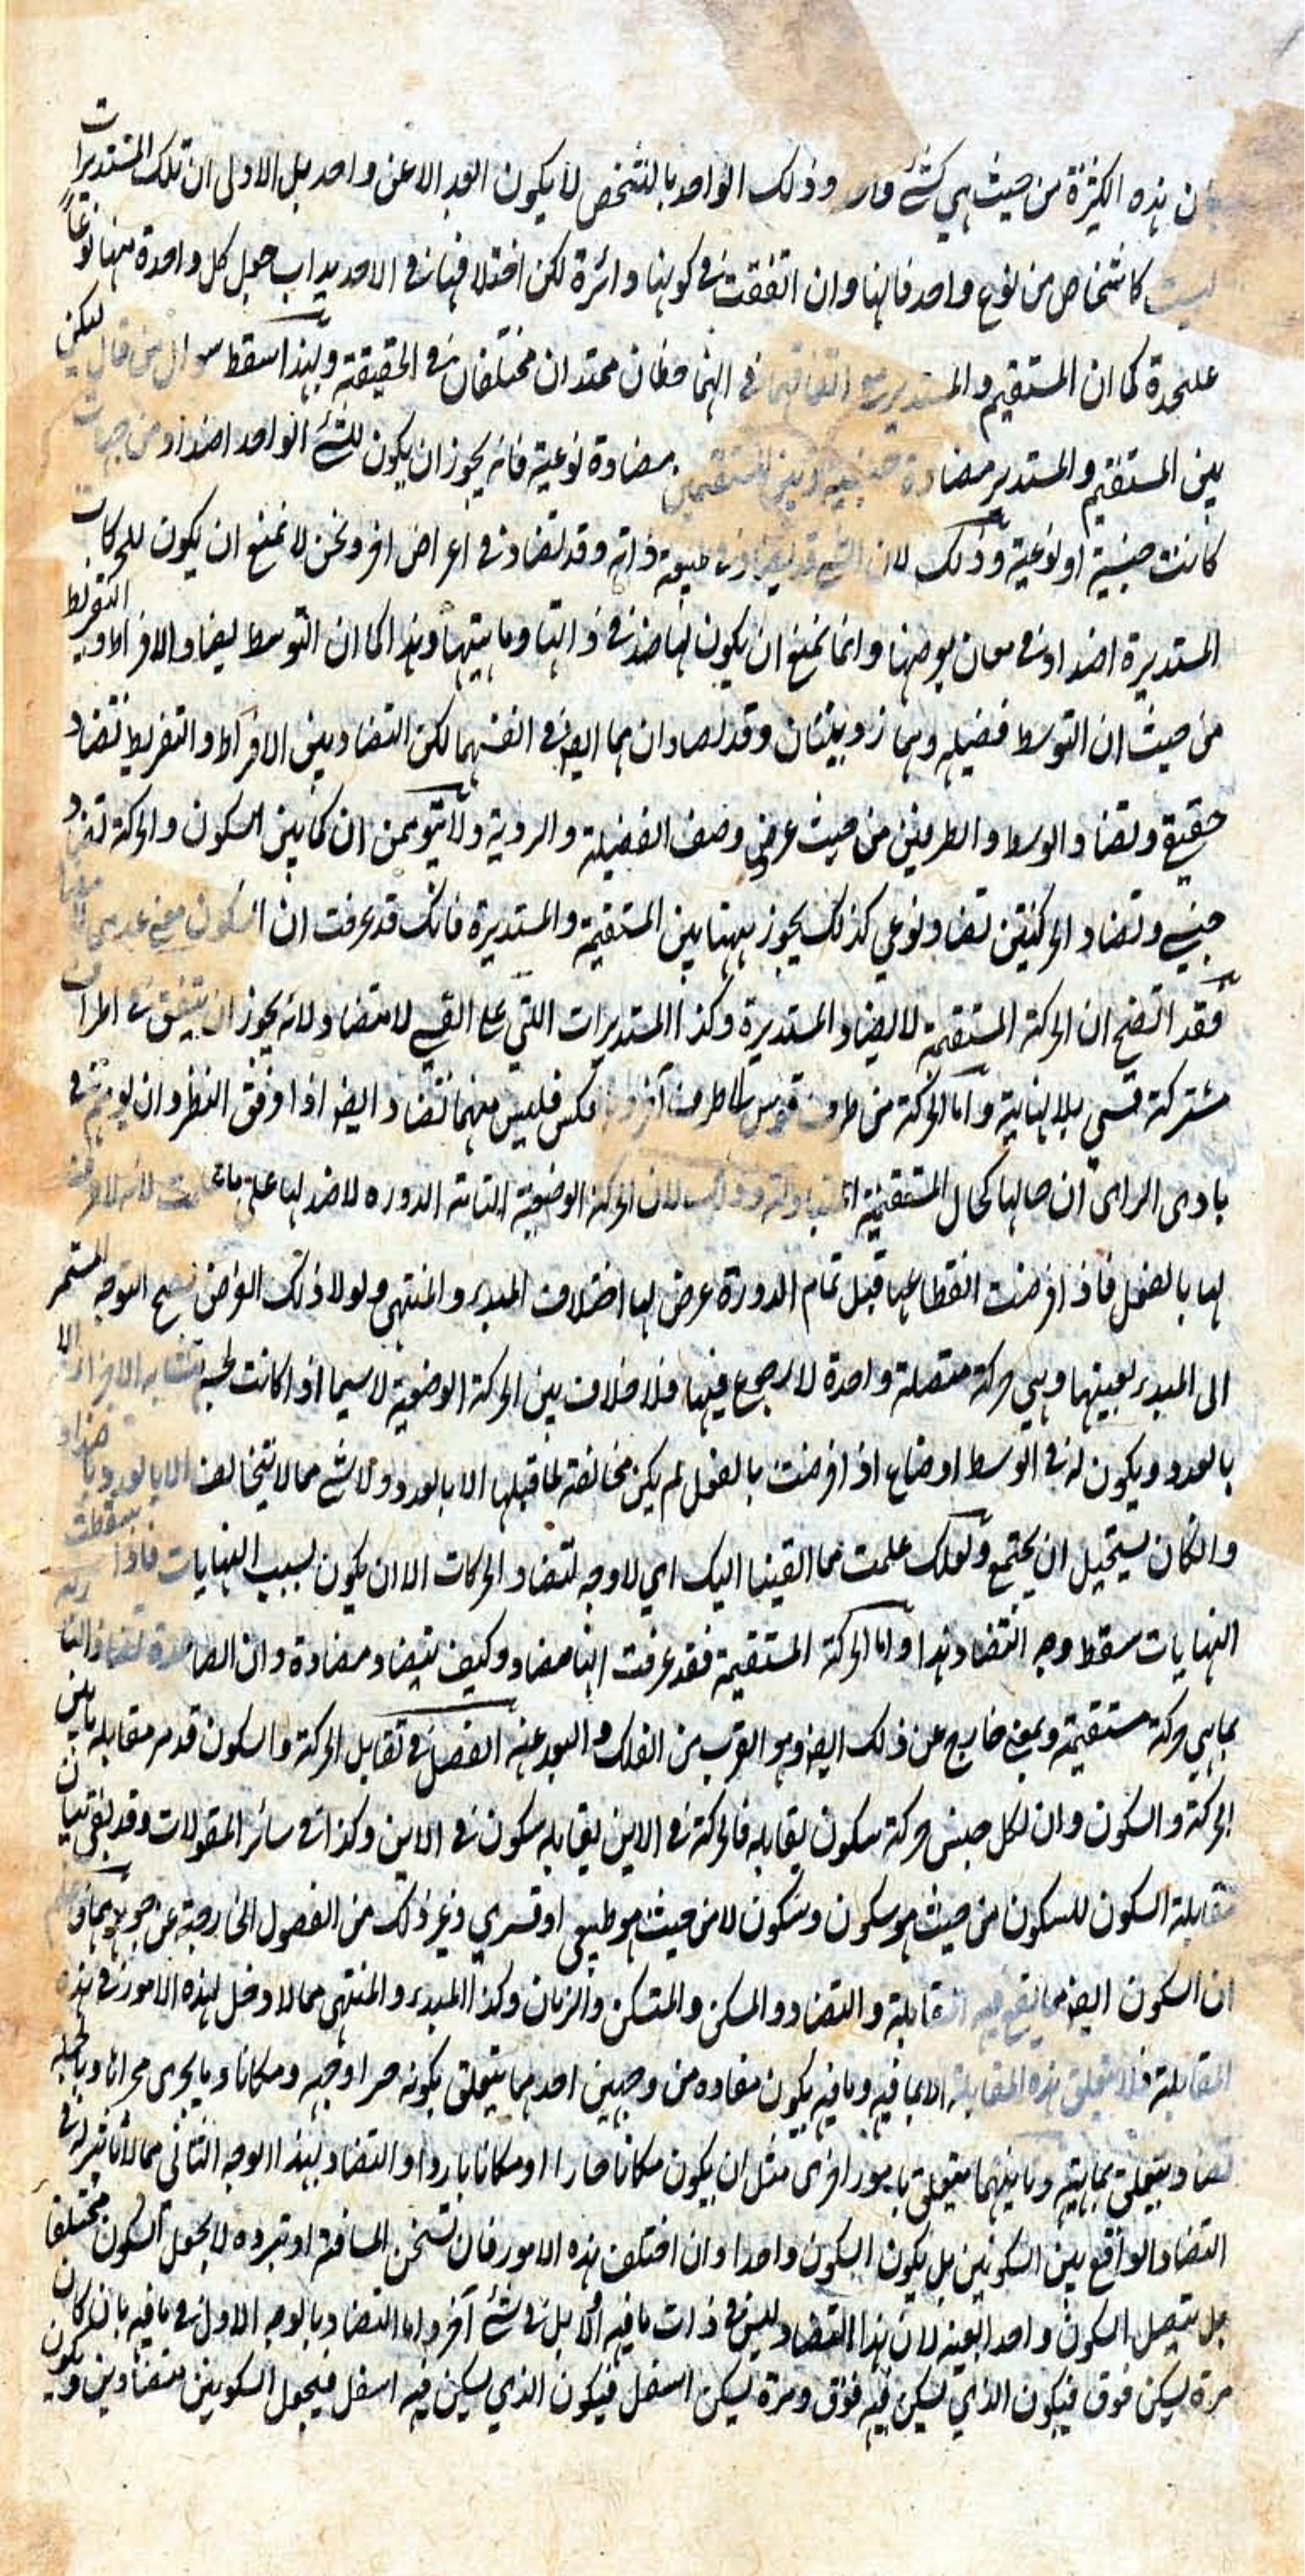 ن هذه الكثرة من حيث هي كشئ واحد وذلك الواحد بالشخص لا يكون الضد الا عن واحد بل الاولى ان تلك المستديرات
ليست كاشخاص من نوع واحد فانها وان اتفقت في كونها دائرة لكن اختلافها في الاحديداب جعل كل واحدة منها نوعاً
عليحدة كما ان المستقيم والمستدير مع اتفاقهما في انهما خطان ممتدان مختلفان في الحقيقة وبهذا سقط سوال من قال ليكن
بين المستقيم والمستدير مضادة جنسية وبين المستقيمين مضادة نوعية فانه يجوز ان يكون للشئ الواحد اضداد من جهات
كانت جنسية او نوعية وذلك لان الشئ قد يضاد في طبيعة ذاته وقد يضاد في اعراض اخر ونحن لا نمنع ان يكون للحركات
المستديرة اضداد في معان يعرضها وانما نمنع ان يكون لها ضد في ذاتها وماهيتها وهذا كما ان التوسط يضاد الافراط والتفريط
من حيث ان التوسط فضيلة وهما رذيلتان وقد تضادان هما ايضا في انفسهما لكن التضاد بين الافراط والتفريط تضاد
حقيقي وتضاد الوسط والطرفين من حيث عرض وصف الفضيلة والردية ولا تتوهمن ان كما بين السكون والحركة تضاد
جنسي وتضاد الحركتين تضاد نوعي كذلك يجوز ههنا بين المستقيمة والمستديرة فانك قد عرفت ان السكون معنى عدمي
فقد اتضح ان الحركة المستقيمة لا يضاد المستديرة وكذا المستديرات اللتي على القسي لا تتضاد لانه يجوز ان يتفق في اطراف
مشتركة قسي بلا نهاية واما الحركة من طرف قوس الى طرف آخر وبالعكس فليس بينهما تضاد ايضا اذا اوفق النظر وان يوهم في
بادي الراى ان حالها كحال المستقيمة المتبادلة وذلك لان الحركة الوضعية التامة الدورة لا ضد لها على ما علمت لانه لا طرف
لها بالفعل فاذا فرضت انقطاعها قبل تمام الدورة عرض لها اختلاف المبدء والمنتهى ولولا ذلك الفرض لصح التوجه المستمر
الى المبدء بعينها وهي حركة متصلة واحدة لا رجوع فيها فلا خلاف بين الحركة الوضعية لاسيما اذا كانت لجسم متشابه الاجزاء الا
بالعدد ويكون له في الوسط اوضاع اذا فرضت بالفعل لم يكن مخالفة لما قبلها الا بالعدد ولا شئ مما لا يتخالف الا بالعدد باضداد
وان كان يستحيل ان يجتمع ولعلك علمت مما القينا اليك اي لا وجه لتضاد الحركات الا ان يكون بسبب النهايات فاذا سقطت
النهايات سقط وجه التضاد هذا واما الحركة المستقيمة فقد عرفت انها مضاد وكيف يتضاد مضادة وان الصاعدة تضاد النازلة
بما هي حركة مستقيمة وبمعنى خارج عن ذلك ايضا وهو القرب من الفلك والبعد عنه الفصل في تقابل الحركة والسكون قد مر مقابلة ما بين
الحركة والسكون وان لكل جنس حركة سكون يقابله فالحركة في الاين يقابله سكون في الاين وكذا في سائر المقولات وقد بقى بيان
مقابلة السكون للسكون من حيث هو سكون وسكون لا من حيث هو طبيعي او قسري وغير ذلك من الفصول الخارجة عن جوهرهما
ان السكون ايضا مما يقع فيه المقابلة والتضاد والمسكن والمتسكن والزمان وكذا المبدء والمنتهى مما لا دخل لهذه الامور في هذه
المقابلة فلا يتعلق هذه المقابلة الا بما فيه وما فيه يكون مضاده من وجهين احدهما يتعلق بكونه حدا وجهة ومكانا وما يجرى مجراها وبالجملة
تضاد يتعلق بماهيته وثانيهما يتعلق بامور اخرى مثل ان يكون مكانا حارا او مكانا باردا والتضاد بهذا الوجه الثاني مما لا تاثير له في
التضاد الواقع بين السكونين بل يكون السكون واحدا وان اختلف هذه الامور فان تسخن المسافة او تبرده لا يجعل السكون مختلفا
بل يتصل السكون واحدا بعينه لان هذا التضاد ليس في ذات ما فيه الا بل في شئ آخر واما التضاد بالوجه الاول في ما فيه بان كان
مرة يسكن فوق فيكون الذي يسكن فيه فوق ومرة يسكن اسفل فيكون الذي يسكن فيه اسفل فيجعل السكونين متضادين ويكون